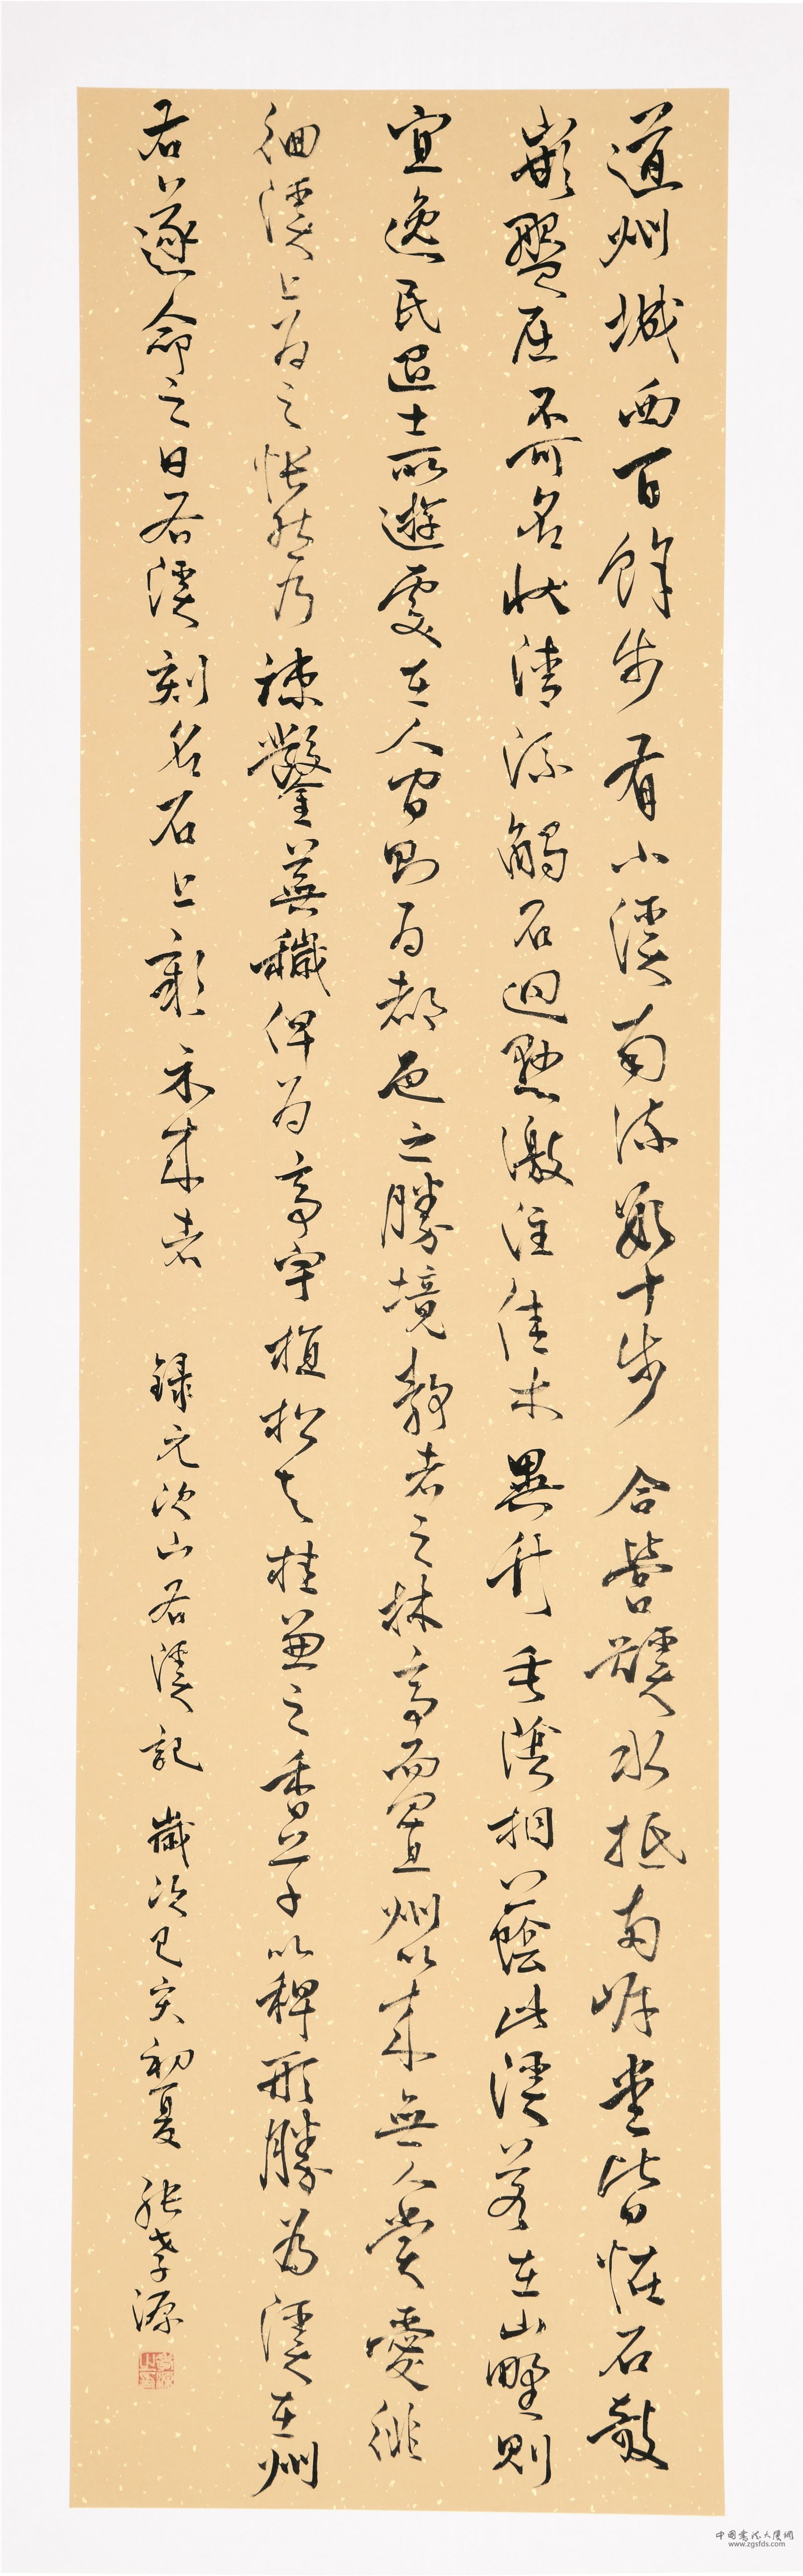 道州城西百餘步有小溪南流數十步合營谿水抵兩岸悉皆怪石欹
嵌盤屈不可名狀清流觸石迴懸激注佳木異竹垂陰相蔭此溪若在山野則
宜逸民退士所遊處在人間則為都邑之勝境靜者之林亭而置州以來無人賞愛徘
徊溪上為之悵然乃疎鑿蕪穢俾為亭宇植松与桂兼之香草以裨形勝為溪在州
右遂命之曰右溪刻名石上彰示來者 錄元次山右溪記 歲次己亥初夏 張孝源
中國書法大廈網
www.zgsfds.com